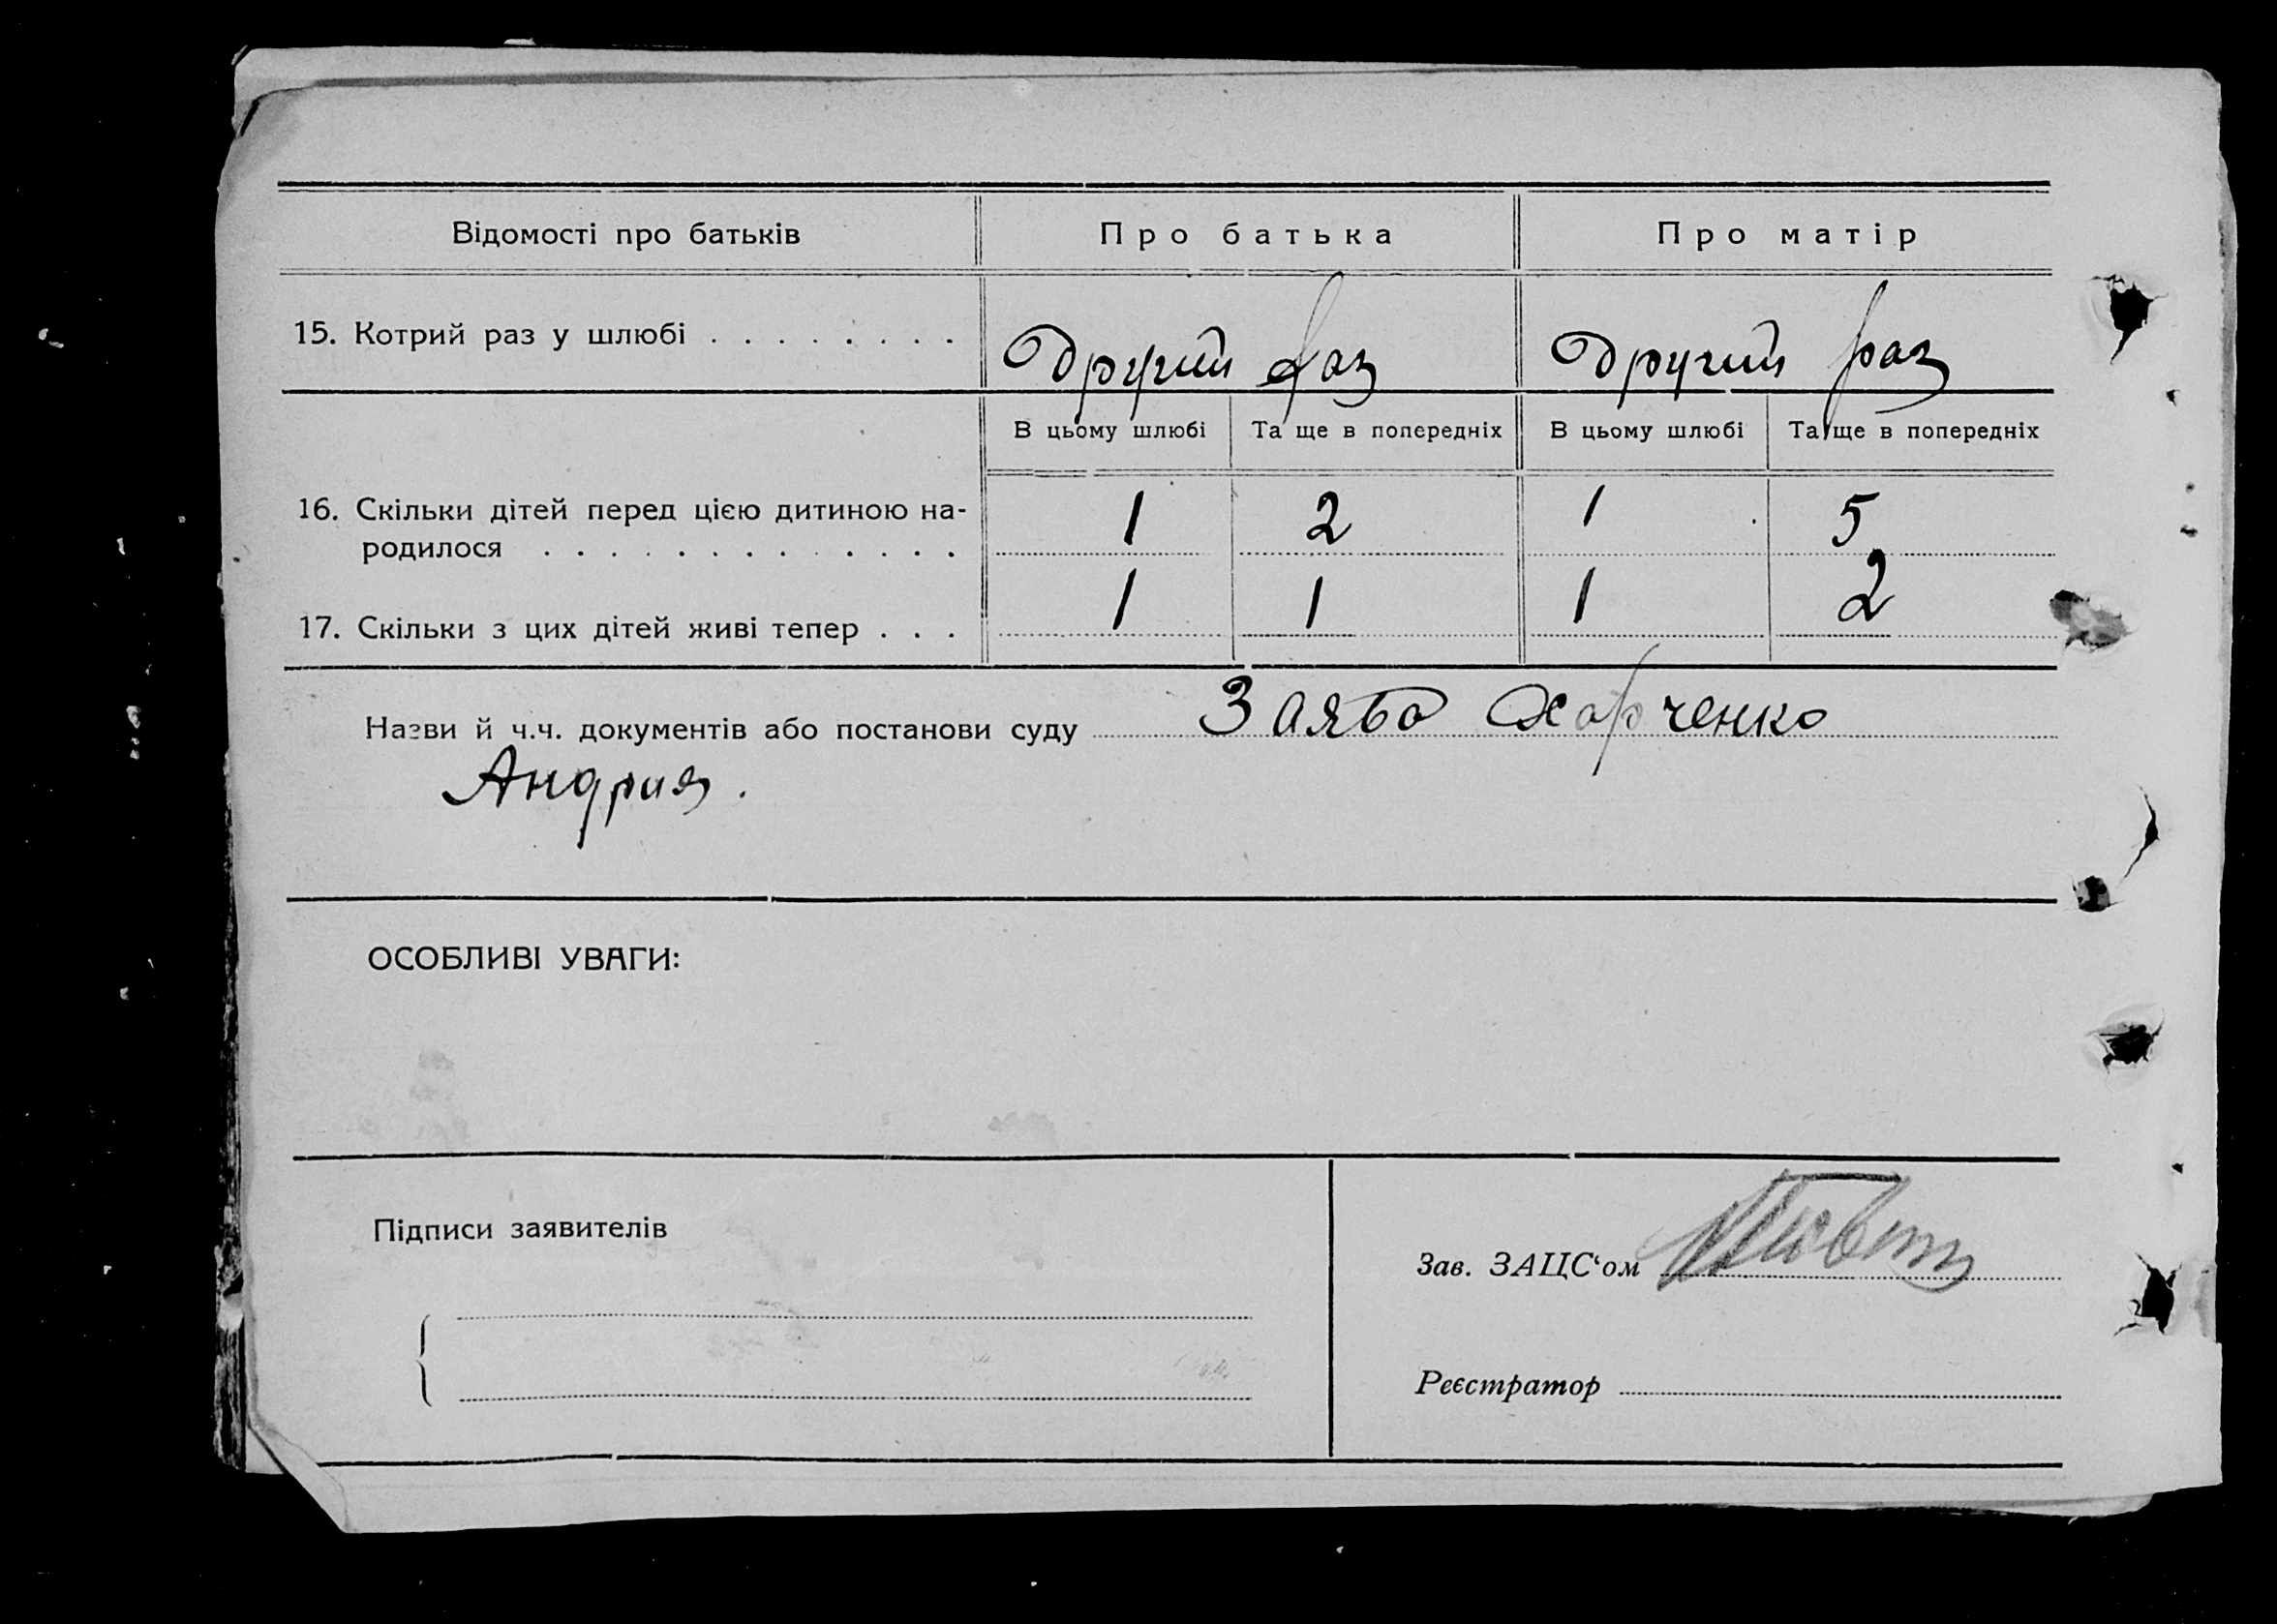 Відомості про батьків Про батька Про матір
15. Котрий раз у шлюбі . . . . . . . . Другий раз Другий раз
В цьому шлюбі Та ще в попередніх В цьому шлюбі Та ще в попередніх
16. Скільки дітей перед цією дитиною на-
родилося . . . . . . . . . . . . . 1 2 1 5
17. Скільки з цих дітей живі тепер . . . 1 1 1 2
Назви й ч.ч. документів або постанови суду Заява Харченко
Андрия.
ОСОБЛИВІ УВАГИ:
Підписи заявителів
Зав. ЗАЦС‘ом
Реєстратор